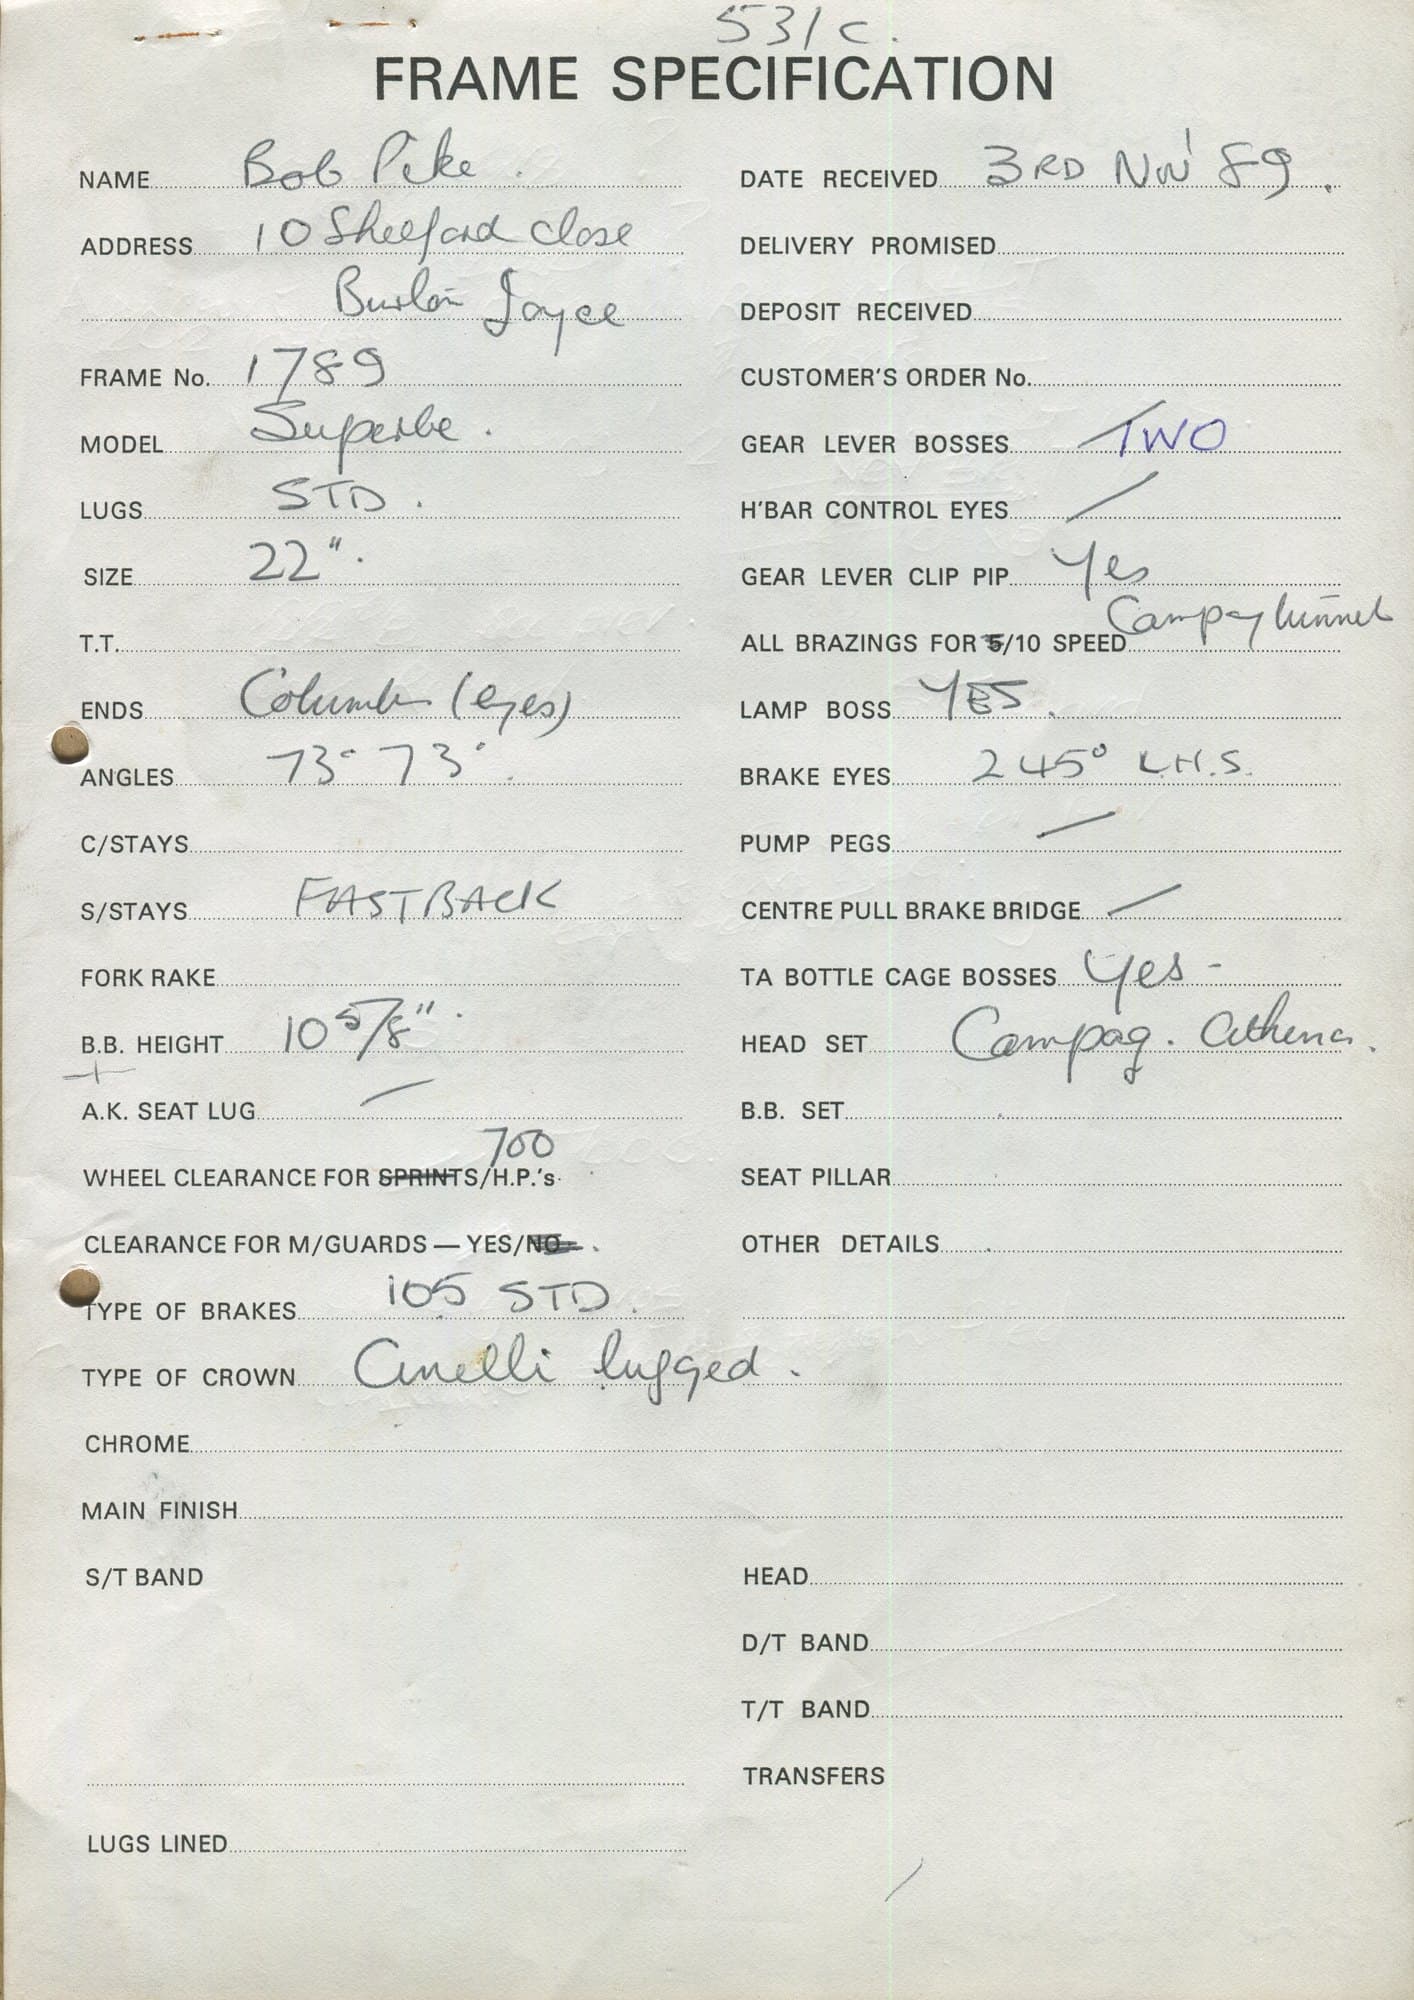 531C.
FRAME SPECIFICATION
NAME Bob Pike.
ADDRESS 10 Shelford Close
Burton Joyce
FRAME No. 1789
MODEL Superbe.
LUGS STD.
SIZE 22".
T.T.
ENDS Columbus (eyes)
ANGLES 73° 73°.
C/STAYS
S/STAYS FASTBACK
FORK RAKE
B.B. HEIGHT 10 5/8".
A.K. SEAT LUG —
700
WHEEL CLEARANCE FOR SPRINTS/H.P.'s
CLEARANCE FOR M/GUARDS — YES/NO
TYPE OF BRAKES 105 STD.
TYPE OF CROWN Cinelli lugged.
CHROME
MAIN FINISH
S/T BAND
LUGS LINED
DATE RECEIVED 3RD Nov' 89.
DELIVERY PROMISED
DEPOSIT RECEIVED
CUSTOMER'S ORDER No.
GEAR LEVER BOSSES TWO
H'BAR CONTROL EYES /
GEAR LEVER CLIP PIP Yes
Campag tunnel
ALL BRAZINGS FOR 5/10 SPEED
LAMP BOSS YES.
BRAKE EYES 2 45° L.H.S.
PUMP PEGS —
CENTRE PULL BRAKE BRIDGE —
TA BOTTLE CAGE BOSSES Yes -
HEAD SET Campag. Athena.
B.B. SET
SEAT PILLAR
OTHER DETAILS
HEAD
D/T BAND
T/T BAND
TRANSFERS